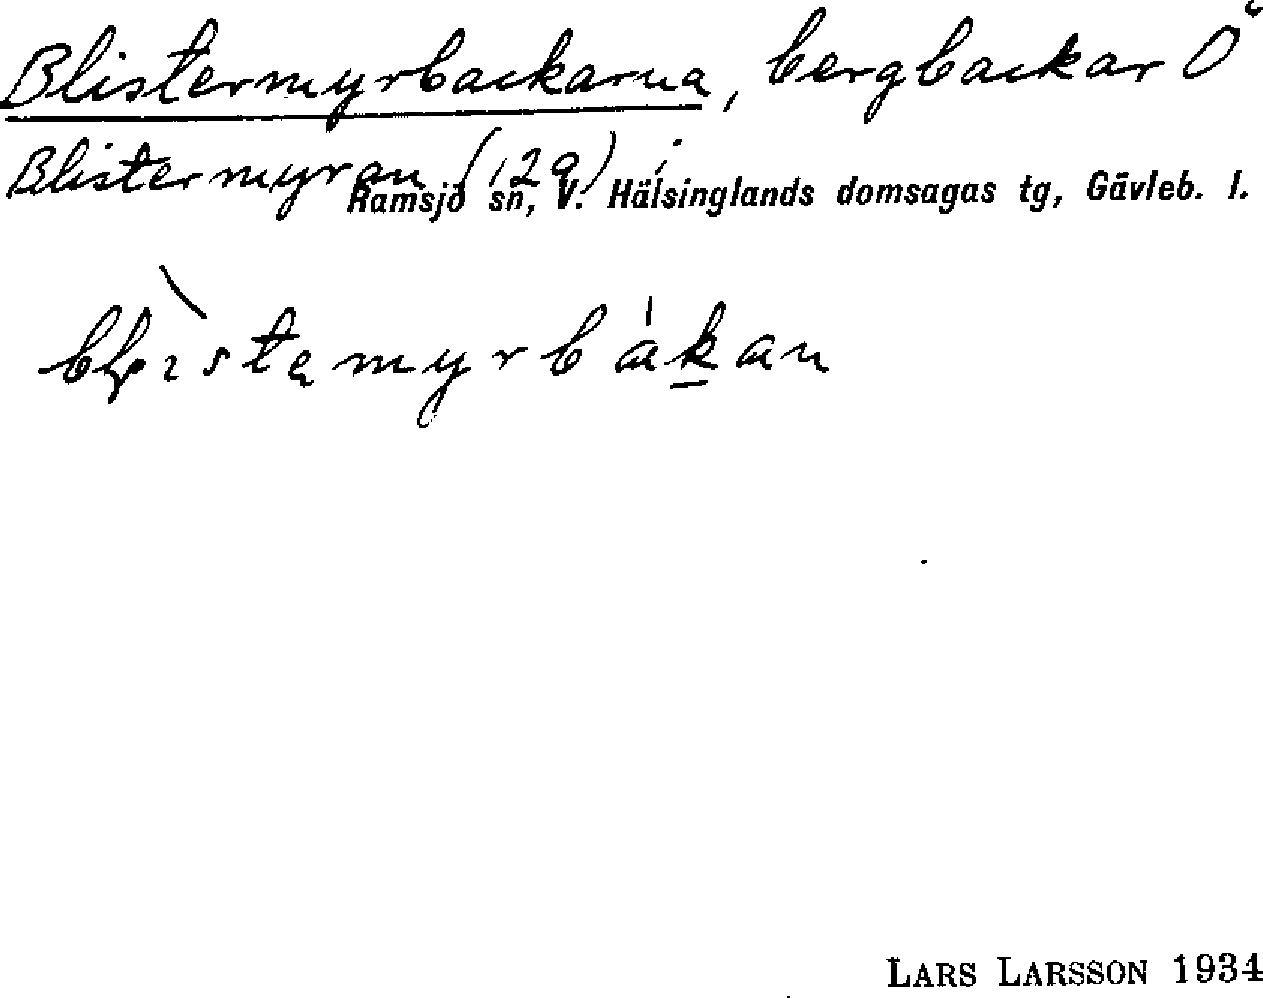 Blistermyrbackarna, bergbackar O
Blistermyran (129) i
Ramsjö sn, V. Hälsinglands domsagas tg, Gävleb. l.
LARS LARSSON 1934